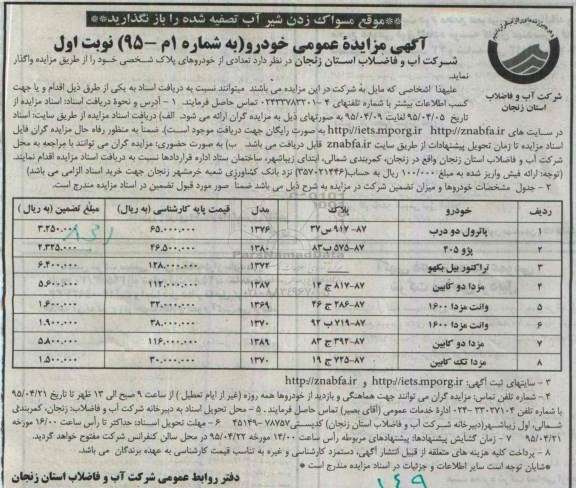 **موقع مسواک زدن شیر آب تصفیه شده را باز نگذارید**
آگهی مزایدهٔ عمومی خودرو(به شماره ۱م -۹۵) نوبت اول
شرکت آب و فاضلاب استان زنجان
شرکت آب و فاضلاب استان زنجان در نظر دارد تعدادی از خودروهای پلاک شخصی خود را از طریق مزایده واگذار
نماید.
علیهذا اشخاصی که مایل به شرکت در این مزایده می باشند میتوانند نسبت به دریافت اسناد به یکی از طرق ذیل اقدام و یا جهت
کسب اطلاعات بیشتر با شماره تلفنهای ۴-۰۲۴۳۳۷۸۳۳۰۱ تماس حاصل فرمایند. ۱ - آدرس و نحوهٔ دریافت اسناد: اسناد مزایده از
تاریخ ۹۵/۰۴/۰۵ لغایت ۹۵/۰۴/۰۹ به صورتهای ذیل به مزایده گران ارائه می شود. الف) دریافت اسناد مزایده از طریق سایت: اسناد
در سایت های http://iets.mporg.ir http://znabfa.ir به صورت رایگان جهت دریافت موجود است). ضمناً به منظور رفاه حال مزایده گران فایل
اسناد مزایده تا زمان تحویل پیشنهادات از طریق سایت znabfa.ir قابل دریافت می باشد. ب) به صورت حضوری: مزایده گران می توانند با مراجعه به محل
شرکت آب و فاضلاب استان زنجان واقع در زنجان، کمربندی شمالی، ابتدای زیباشهر، ساختمان ستاد اداره قراردادها نسبت به دریافت اسناد مزایده اقدام نمایند.
(توجه: ارائه فیش واریز شده به مبلغ ۱۰۰/۰۰۰ ریال به حساب(۳۵۷۰۲۱۴۴۶) نزد بانک کشاورزی شعبه خرمشهر زنجان جهت خرید اسناد الزامی می باشد)
۲ - جدول مشخصات خودروها و میزان تضمین شرکت در مزایده به شرح ذیل می باشد ضمناً صور مورد قبول تضمین در اسناد مزایده مندرج است.
ردیف خودرو پلاک مدل قیمت پایه کارشناسی (به ریال) مبلغ تضمین (به ریال)
۱ پاترول دو درب ۸۷-۹۱۷ س ۳۷ ۱۳۷۶ ۶۵.۰۰۰.۰۰۰ ۳.۲۵۰.۰۰۰
۲ پژو ۴۰۵ ۸۷-۵۷۵ ب ۸۳ ۱۳۸۰ ۴۶.۵۰۰.۰۰۰ ۲.۳۲۵.۰۰۰
۳ تراکتور بیل بکهو ۱۳۷۲ ۱۲۸.۰۰۰.۰۰۰ ۶.۴۰۰.۰۰۰
۴ مزدا دو کابین ۸۷-۸۱۷ ج ۱۴ ۱۳۸۷ ۱۱۲.۰۰۰.۰۰۰ ۵.۶۰۰.۰۰۰
۵ وانت مزدا ۱۶۰۰ ۸۷-۲۸۶ ج ۴۶ ۱۳۶۹ ۳۲.۰۰۰.۰۰۰ ۱.۶۰۰.۰۰۰
۶ وانت مزدا ۱۶۰۰ ۸۷-۷۱۹ ب ۹۲ ۱۳۷۰ ۳۸.۰۰۰.۰۰۰ ۱.۹۰۰.۰۰۰
۷ مزدا دو کابین ۸۷-۳۹۲ ج ۸۳ ۱۳۸۹ ۱۱۶.۰۰۰.۰۰۰ ۵.۸۰۰.۰۰۰
۸ مزدا تک کابین ۸۷-۷۲۵ ج ۱۹ ۱۳۷۰ ۳۰.۰۰۰.۰۰۰ ۱.۵۰۰.۰۰۰
۳ - سایتهای ثبت آگهی: http://iets.mporg.ir و http://znabfa.ir
۴ - شماره تلفن تماس: مزایده گران می توانند جهت هماهنگی و بازدید از خودروها همه روزه (غیر از ایام تعطیل ) از ساعت ۹ صبح الی ۱۳ ظهر تا تاریخ ۹۵/۰۴/۲۱
با شماره تلفن ۳۳۰۲۷۱۰۴-۰۲۴ ادارهٔ خدمات عمومی (آقای بصیر) تماس حاصل فرمایند. ۵ - محل تحویل اسناد به دبیرخانه شرکت آب و فاضلاب: زنجان، کمربندی
شمالی، اول زیباشهر(دبیرخانه شرکت آب و فاضلاب استان زنجان) کدپستی ۷۸۷۵۷-۴۵۱۴۹ ۶ - مهلت تحویل اسناد: حداکثر تا رأس ساعت ۱۶/۰۰ مورخه
۹۵/۰۴/۲۱ ۷ - زمان گشایش پیشنهادها: پیشنهادهای مربوطه رأس ساعت ۱۴/۰۰ مورخه ۹۵/۰۴/۲۲ در محل سالن کنفرانس شرکت مفتوح خواهد گردید.
۸ - پرداخت کلیه هزینه های متعلقه از قبیل انتشار آگهی، دستمزد کارشناسی و غیره به تناسب قیمت کارشناسی به عهده برندگان می باشد.
*شایان توجه است سایر اطلاعات و جزئیات در اسناد مزایده مندرج است *
دفتر روابط عمومی شرکت آب و فاضلاب استان زنجان